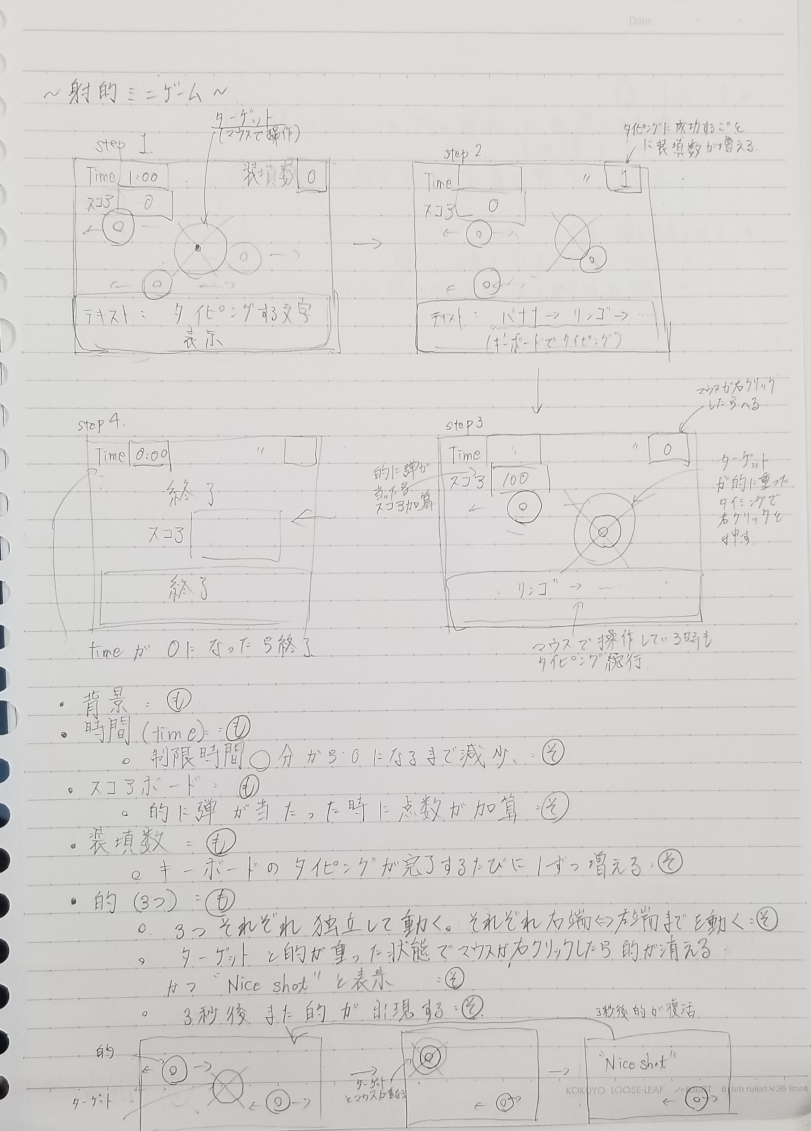 Date
～射的ミニゲーム～
ターゲット
(マウスで操作)
step 1.
Time 1:00
装填数 0
スコア 0
テキスト： タイピングする文字
表示
タイピングに成功するごと
に装填数が増える
step 2
Time
〃 1
スコア 0
テキスト： バナナ→リンゴ→
(キーボードでタイピング)
マウスが右クリック
したらへる
step3
Time :
〃 0
スコア 100
的に弾が
当ったら
スコア加算
ターゲット
が的に重った
タイミングで
右クリックを
押す
リンゴ →
マウスで操作している時も
タイピング続行
step 4.
Time 0:00
〃
終了
スコア
終了
timeが 0になったら終了
・背景 : も
・時間(time) : も
○ 制限時間○分から0になるまで減少、: そ
・スコアボード : も
○ 的に弾が当たった時に点数が加算 : そ
・装填数 : も
○ キーボードのタイピングが完了するたびに1ずつ増える : そ
・的(3つ) : も
○ 3つそれぞれ独立して動く。それぞれ右端⇔左端までを動く : そ
○ ターゲットと的が重った状態でマウスが右クリックしたら的が消える
かつ "Nice shot"と表示 : そ
○ 3秒後また的が出現する : そ
3秒後的が復活
的
ターゲット
"Nice shot"
KOKUYO LOOSE-LEAF 6mm ruled×36 lines